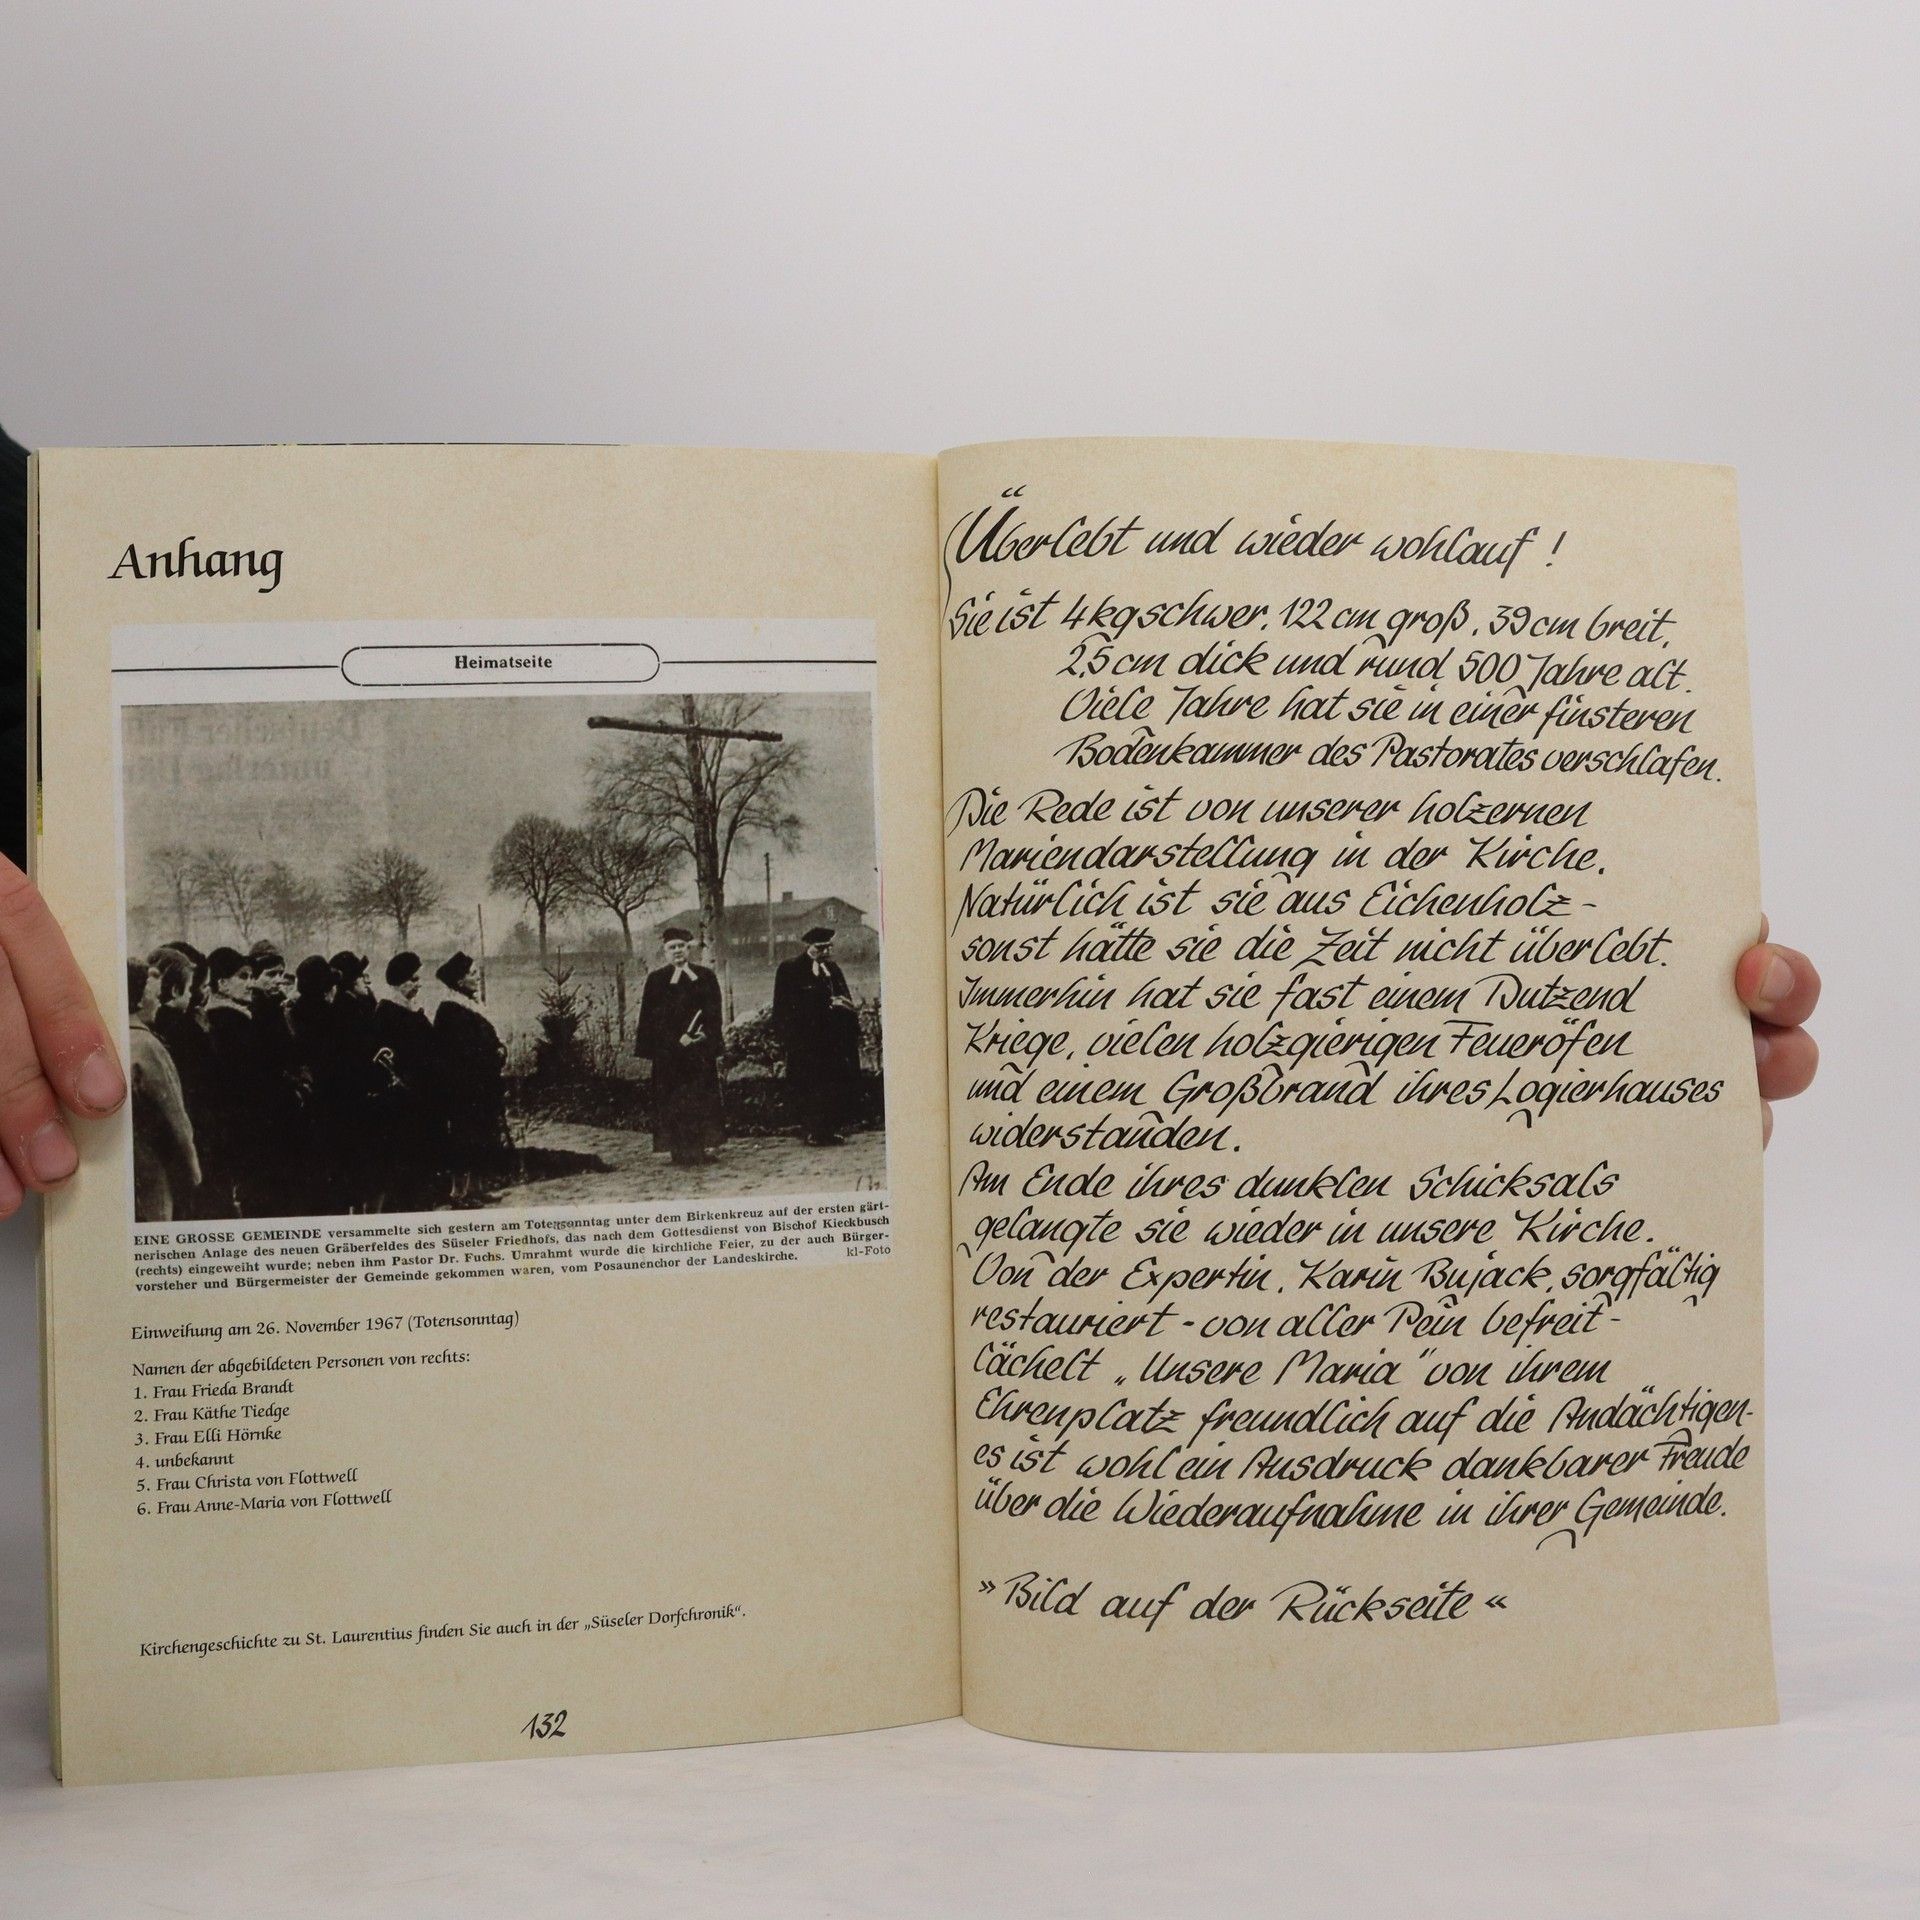 Anhang
Heimatseite
EINE GROSSE GEMEINDE versammelte sich gestern am Totensonntag unter dem Birkenkreuz auf der ersten gärt-
nerischen Anlage des neuen Gräberfeldes des Süseler Friedhofs, das nach dem Gottesdienst von Bischof Kieckbusch
(rechts) eingeweiht wurde; neben ihm Pastor Dr. Fuchs. Umrahmt wurde die kirchliche Feier, zu der auch Bürger-
vorsteher und Bürgermeister der Gemeinde gekommen waren, vom Posaunenchor der Landeskirche. kl-Foto
Einweihung am 26. November 1967 (Totensonntag)
Namen der abgebildeten Personen von rechts:
1. Frau Frieda Brandt
2. Frau Käthe Tiedge
3. Frau Elli Hörnke
4. unbekannt
5. Frau Christa von Flottwell
6. Frau Anne-Maria von Flottwell
Kirchengeschichte zu St. Laurentius finden Sie auch in der „Süseler Dorfchronik“.
132
Überlebt und wieder wohlauf !
Sie ist 4 kg schwer, 122 cm groß, 39 cm breit,
2,5 cm dick und rund 500 Jahre alt.
Viele Jahre hat sie in einer finsteren
Bodenkammer des Pastorates verschlafen.
Die Rede ist von unserer holzernen
Mariendarstellung in der Kirche.
Natürlich ist sie aus Eichenholz -
sonst hätte sie die Zeit nicht überlebt.
Immerhin hat sie fast einem Dutzend
Kriege, vielen holzgierigen Feueröfen
und einem Großbrand ihres Logierhauses
widerstanden.
Am Ende ihres dunklen Schicksals
gelangte sie wieder in unsere Kirche.
Von der Expertin, Karin Bujack, sorgfältig
restauriert - von aller Pein befreit -
lächelt „Unsere Maria“ von ihrem
Ehrenplatz freundlich auf die Andächtigen-
es ist wohl ein Ausdruck dankbarer Freude
über die Wiederaufnahme in ihrer Gemeinde.
»Bild auf der Rückseite«